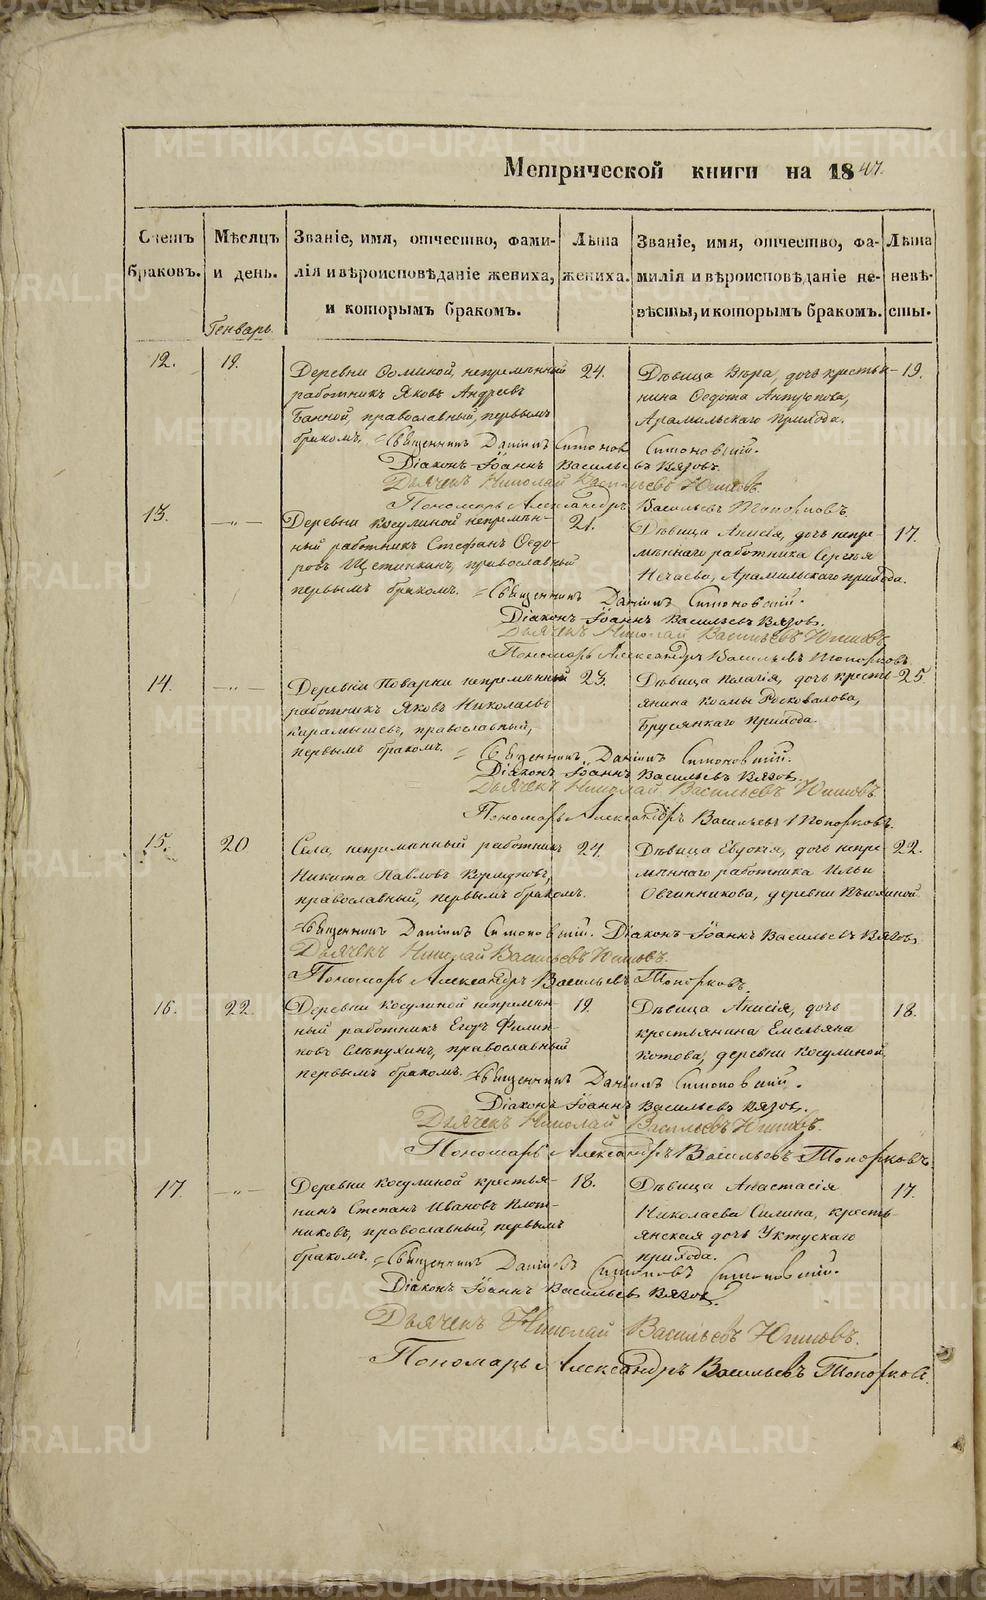 Метрической книги на 1847.
Счетъ браковъ.
Мѣсяцъ и день.
Званіе, имя, отчество, фами-
лія и вѣроисповѣданіе жениха,
и которымъ бракомъ.
Лѣта жениха.
Званіе, имя, отчество, фа-
милія и вѣроисповѣданіе не-
вѣсты, и которымъ бракомъ.
Лѣта невѣ-
сты.
Генварь
12. 19. Деревни Ѳоминой, непремѣнный 24. Дѣвица Вѣра, дочь крестья- 19.
работникъ Яковъ Андреевъ нина Ѳедота
Банной, православный, первымъ Арамильскаго прихода.
бракомъ. Священникъ Даніилъ Симоновскій.
Діаконъ Іоаннъ Васильевъ Вязовъ.
Дьячекъ Николай Васильевъ
Пономарь Александръ Васильевъ Топорковъ.
13. —„— Деревни Косулиной непремѣн- 21. Дѣвица Анисія, дочь непре- 17.
ный работникъ Стефанъ Ѳедо- мѣннаго работника Сергѣя
ровъ Щетинкинъ, православный Нечаева, Арамильскаго прихода.
первымъ бракомъ. Священникъ Даніилъ Симоновскій.
Діаконъ Іоаннъ Васильевъ Вязовъ.
Дьячекъ Николай Васильевъ
Пономарь Александръ Васильевъ Топорковъ.
14. —„— Деревни Поварни непремѣнный 23. Дѣвица Пелагія, дочь кресть- 25.
работникъ Яковъ Николаевъ янина Козмы
Карамышевъ, православный, Брусянкаго прихода.
первымъ бракомъ. Священникъ Даніилъ Симоновскій.
Діаконъ Іоаннъ Васильевъ Вязовъ.
Дьячекъ Николай Васильевъ
Пономарь Александръ Васильевъ Топорковъ.
15. 20 Села, непремѣнный работникъ 24. Дѣвица Евдокія, дочь непре- 22.
Никита Павловъ мѣннаго работника Ильи
православный, первымъ бракомъ. Овчинникова, деревни
Священникъ Даніилъ Симоновскій. Діаконъ Іоаннъ Васильевъ Вязовъ.
Дьячекъ Николай Васильевъ
Пономарь Александръ Васильевъ Топорковъ.
16. 22. Деревни Косулиной непремѣн- 19. Дѣвица Анисія, дочь 18.
ный работникъ Егоръ Филип- крестьянина Емельяна
повъ Слѣпухинъ, православный Котова, деревни Косулиной
первымъ бракомъ. Священникъ Даніилъ Симоновскій.
Діаконъ Іоаннъ Васильевъ Вязовъ.
Дьячекъ Николай Васильевъ
Пономарь Александръ Васильевъ Топорковъ.
17. —„— Деревни Косулиной крестья- 18. Дѣвица Анастасія 17.
нинъ Степанъ Ивановъ Плот- Николаева Силина, кресть-
никовъ, православный, первымъ янская дочь Уктускаго
бракомъ. прихода.
Священникъ Даніилъ Симоновскій.
Діаконъ Іоаннъ Васильевъ Вязовъ.
Дьячекъ Николай Васильевъ
Пономарь Александръ Васильевъ Топорковъ.
METRIKI.GASO-URAL.RU